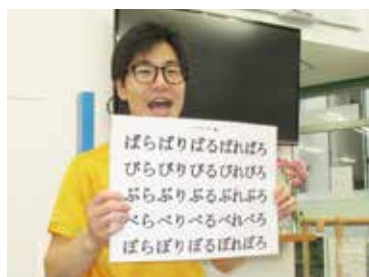 ぱらぱりぱるぱれぱろ
ぴらぴりぴるぴれぴろ
ぷらぷりぷるぷれぷろ
ぺらぺりぺるぺれぺろ
ぽらぽりぽるぽれぽろ